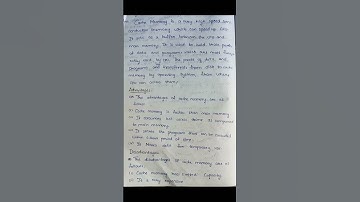 Cache Memory is a very high speed semi
conductor memory which can speed up CPU
It acts as a buffer between the CPU and
main memory. It is used to hold those parts
of data and program which are most
by CPU. The parts of data and
programs are transferred from disk to cache
memory by operating system, from where
CPU can access them.
Advantages
The advantages of cache memory are as
follows
Cache memory is faster than main memory
It consumes less access time as compared
to main memory
It stores the program that can be executed
within a short period of time
It stores data for temporary use
Disadvantages
The disadvantages of cache memory are as
follows
Cache memory has limited capacity
It is very expensive